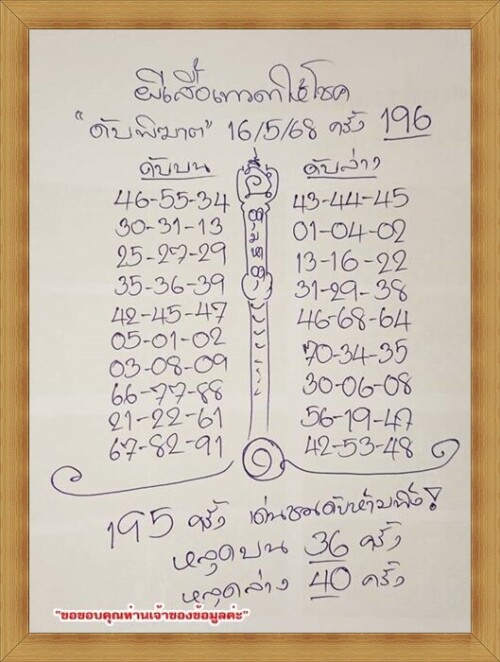 ผีเสื้อเทวดาให้โชค
"ดับพิฆาต" 16/5/68 ครั้ง 196
ดับบน
46-55-34
30-31-13
25-27-29
35-36-39
42-45-47
05-01-02
03-08-09
66-77-88
21-22-61
67-82-91
ดับล่าง
43-44-45
01-04-02
13-16-22
31-29-38
46-68-64
70-34-35
30-06-08
56-19-47
42-53-48
๑
195 ครั้ง
หลุดบน 36 ครั้ง
หลุดล่าง 40 ครั้ง
"ขอขอบคุณท่านเจ้าของข้อมูลค่ะ"